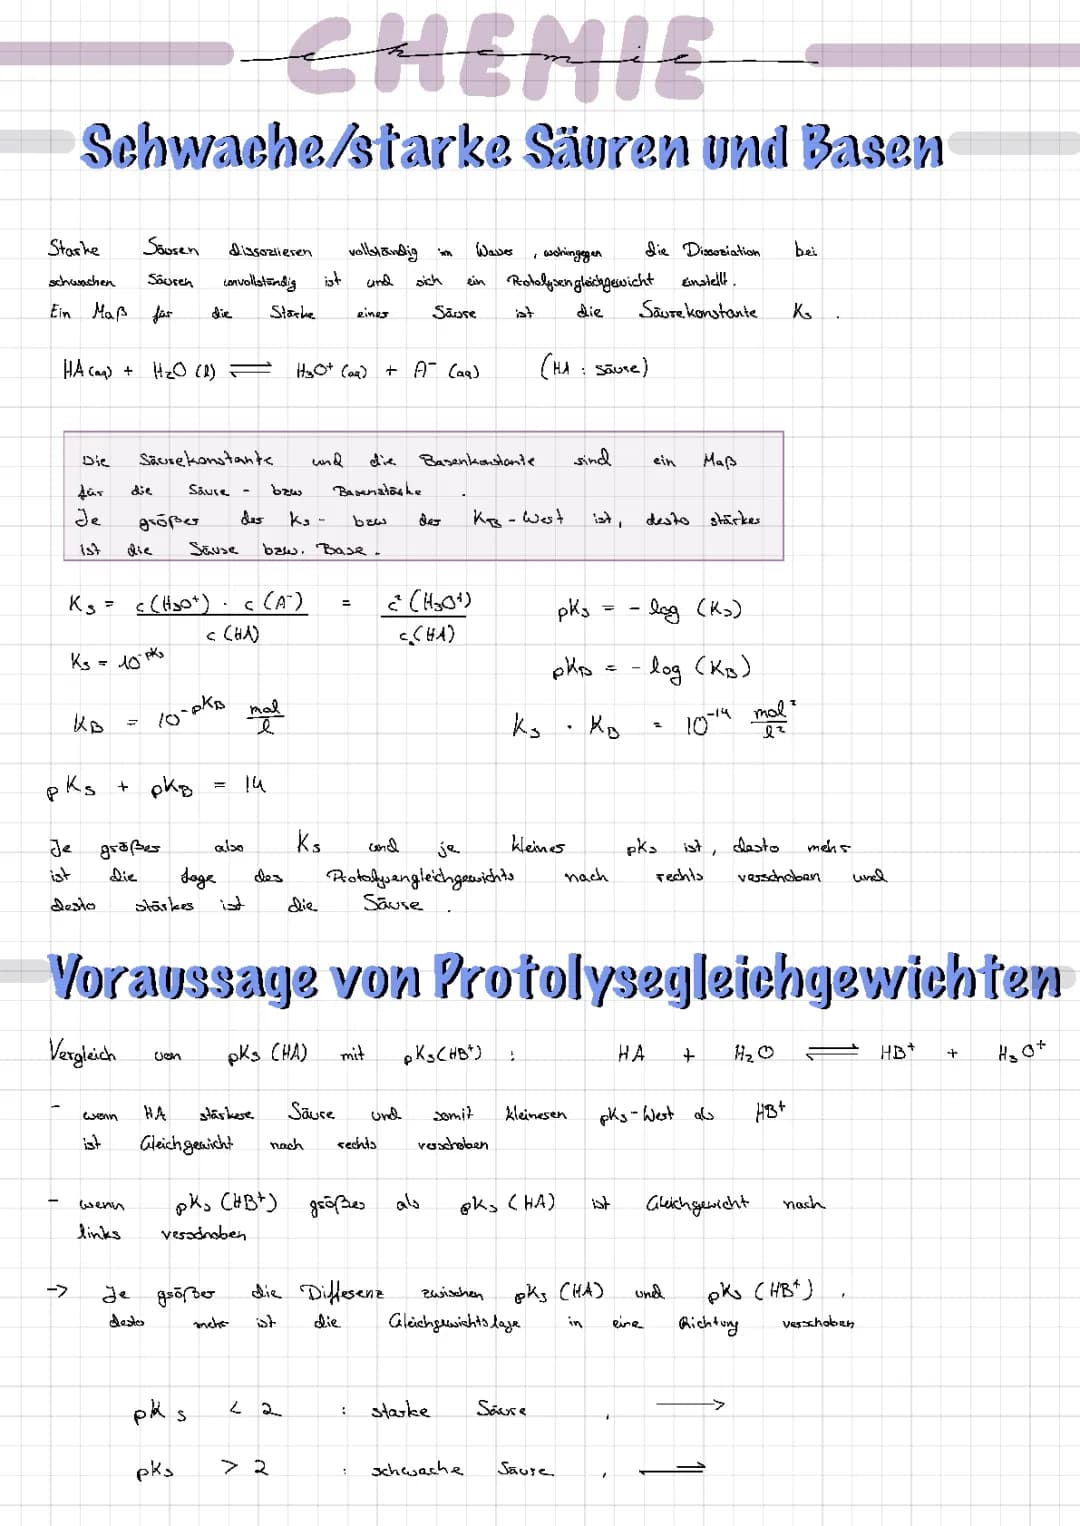 CHEMIE
chemie
Schwache/starke Säuren und Basen
Starke Säuren dissoziieren vollständig im Wasser, wohingegen die Dissoziation bei
schwachen Säuren unvollständig ist und sich ein Protolysengleichgewicht einstellt.
Ein Maß für die Stärke einer Säure ist die Säurekonstante Ks.
HA (aq) + H₂O (l) ⇌ H₃O⁺ (aq) + A⁻ (aq) (HA : Säure)
Die Säurekonstante und die Basenkonstante sind ein Maß
für die Säure- bzw Basenstärke.
Je größer der Ks- bzw der KB-Wert ist, desto stärker
ist die Säure bzw. Base.
Ks = c(H₃O⁺) · c(A⁻) / c(HA) = c²(H₃O⁺) / c(HA) pKs = - log (Ks)
Ks = 10^-pKs pKB = - log (KB)
KB = 10^-pKB mol/l Ks · KB = 10⁻¹⁴ mol²/l²
pKs + pKB = 14
Je größer also Ks und je kleiner pKs ist, desto mehr
ist die Lage des Protolysengleichgewichts nach rechts verschoben und
desto stärker ist die Säure.
Voraussage von Protolysegleichgewichten
Vergleich von pKs (HA) mit pKs (HB⁺) : HA + H₂O ⇌ HB⁺ + H₃O⁺
- wenn HA stärkere Säure und somit kleineren pKs-Wert als HB⁺
ist Gleichgewicht nach rechts verschoben
- wenn pKs (HB⁺) größer als pKs (HA) ist Gleichgewicht nach
links verschoben
-> Je größer die Differenz zwischen pKs (HA) und pKs (HB⁺),
desto mehr ist die Gleichgewichtslage in eine Richtung verschoben
pKs < 2 : starke Säure, →
pKs > 2 : schwache Säure, ⇌